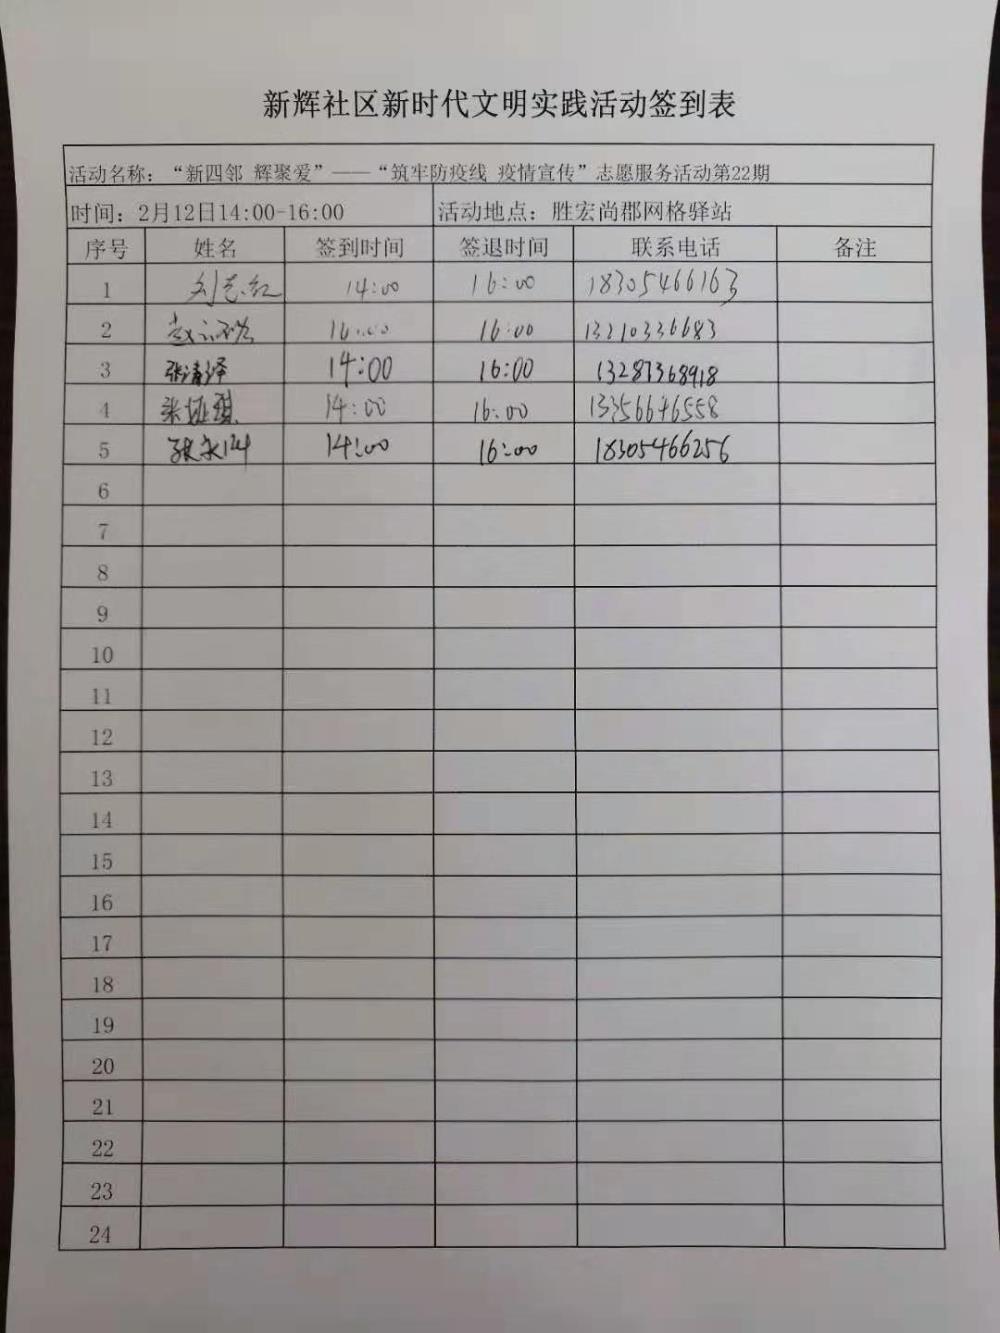 新辉社区新时代文明实践活动签到表
活动名称：“新四邻 辉聚爱”——“筑牢防疫线 疫情宣传”志愿服务活动第22期
时间：2月12日14:00-16:00 活动地点：胜宏尚郡网格驿站
序号 姓名 签到时间 签退时间 联系电话 备注
1 刘志红 14:00 16:00 18305466163
2 16:00 13210336683
3 张清泽 14:00 16:00 13287368918
4 14:00 16:00 13356646558
5 14:00 16:00 18305466256
6
7
8
9
10
11
12
13
14
15
16
17
18
19
20
21
22
23
24